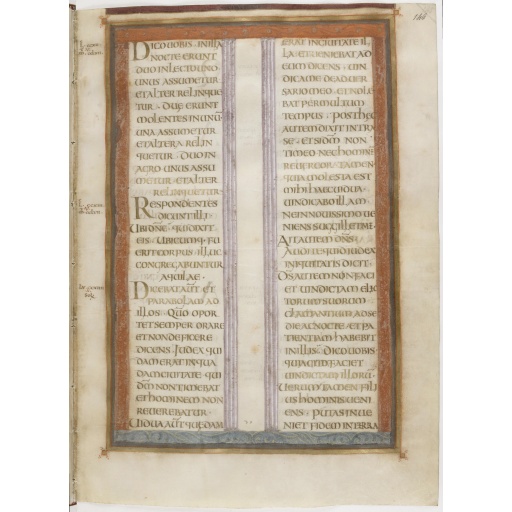 146
DICO VOBIS INILLA
NOCTE ERUNT
DUO INLECTO UNO
UNUS ASSUMETUR
ET ALTER RELINQUE
TUR · DUAE ERUNT
MOLENTES IN UNUM
UNA ASSUMETUR
ET ALTERA RELIN
QUETUR · DUO IN
AGRO UNUS ASSU
METUR ET ALTER
RELINQUETUR·
RESPONDENTES
DICUNT ILLI
UBI DNE · QUI DIXIT
EIS · UBICUMQ· FU
ERIT CORPUS ILLUC
CONGREGABUNTUR
AQUILAE ·
DICEBAT AUT ET
PARABOLAM AD
ILLOS · QUO OPOR
TET SEMPER ORARE
ET NON DEFICERE
DICENS · IUDEX QUI
DAM ERAT IN QUA
DAM CIUITATE QUI
DM NON TIMEBAT
ET HOMINEM NON
REUEREBATUR ·
UIDUA AUT QUEDAM
ERAT IN CIUITATE IL
LA ET UENIEBAT AD
EUM DICENS · UIN
DICA ME DE ADUER
SARIO MEO · ET NOLE
BAT PER MULTUM
TEMPUS · POST HEC
AUTEM DIXIT INTRA
SE · ET SI DM NON
TIMEO NEC HOMINE
REUEREOR · TAMEN
QUIA MOLESTA EST
MIHI HAEC UIDUA ·
UINDICABO ILLAM
NE IN NOUISSIMO UE
NIENS SUGGILLET ME ·
AIT AUTEM DNS
AUDITE QUID IUDEX
INIQUITATIS DICIT ·
DS AUTEM NON FACI
ET UINDICTAM ELEC
TORUM SUORUM
CLAMANTIUM AD SE
DIE AC NOCTE · ET PA
TIENTIAM HABEBIT
IN ILLIS · DICO UOBIS
QUIA CITO FACIET
UINDICTAM ILLORU ·
UERUM TAMEN FILI
US HOMINIS UENI
ENS · PUTAS INUE
NIET FIDEM IN TERRA